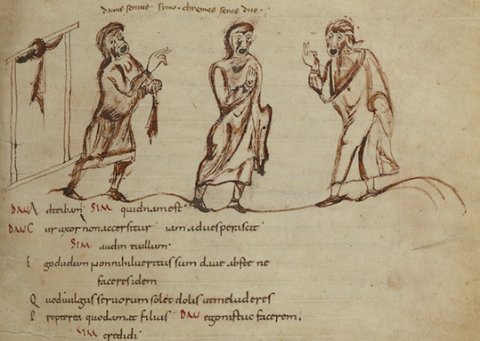 dauus seruus symo. chremes senes duo.
DAV Adteibam SIM quidnam est
DAV Cur uxor non accersitur iam aduesperascit
SIM audin tuillum
Ego dudum nonnihil ueritus sum daue abste ne
faceres idem
Quod uulgus seruorum solet dolis ut me luderes
Propterea quod amat filius DAV egonistuc facerem.
SIM credidi